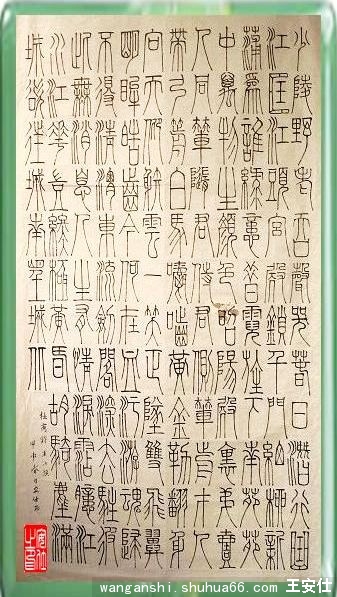 少陵野老吞聲哭春日潛行曲
江曲江頭宮殿鎖千門細柳新
蒲為誰綠憶昔霓旌下南苑苑
中萬物生顏色昭陽殿裏第一
人同輦隨君侍君側輦前才人
帶弓箭白馬嚼齧黃金勒翻身
向天仰射雲一笑正墜雙飛翼
明眸皓齒今何在血污遊魂歸
不得清渭東流劍閣深去住彼
此無消息人生有情淚沾臆江
水江花豈終極黃昏胡騎塵滿
城欲往城南望城北
wanganshi.shuhua66.com 王安仕